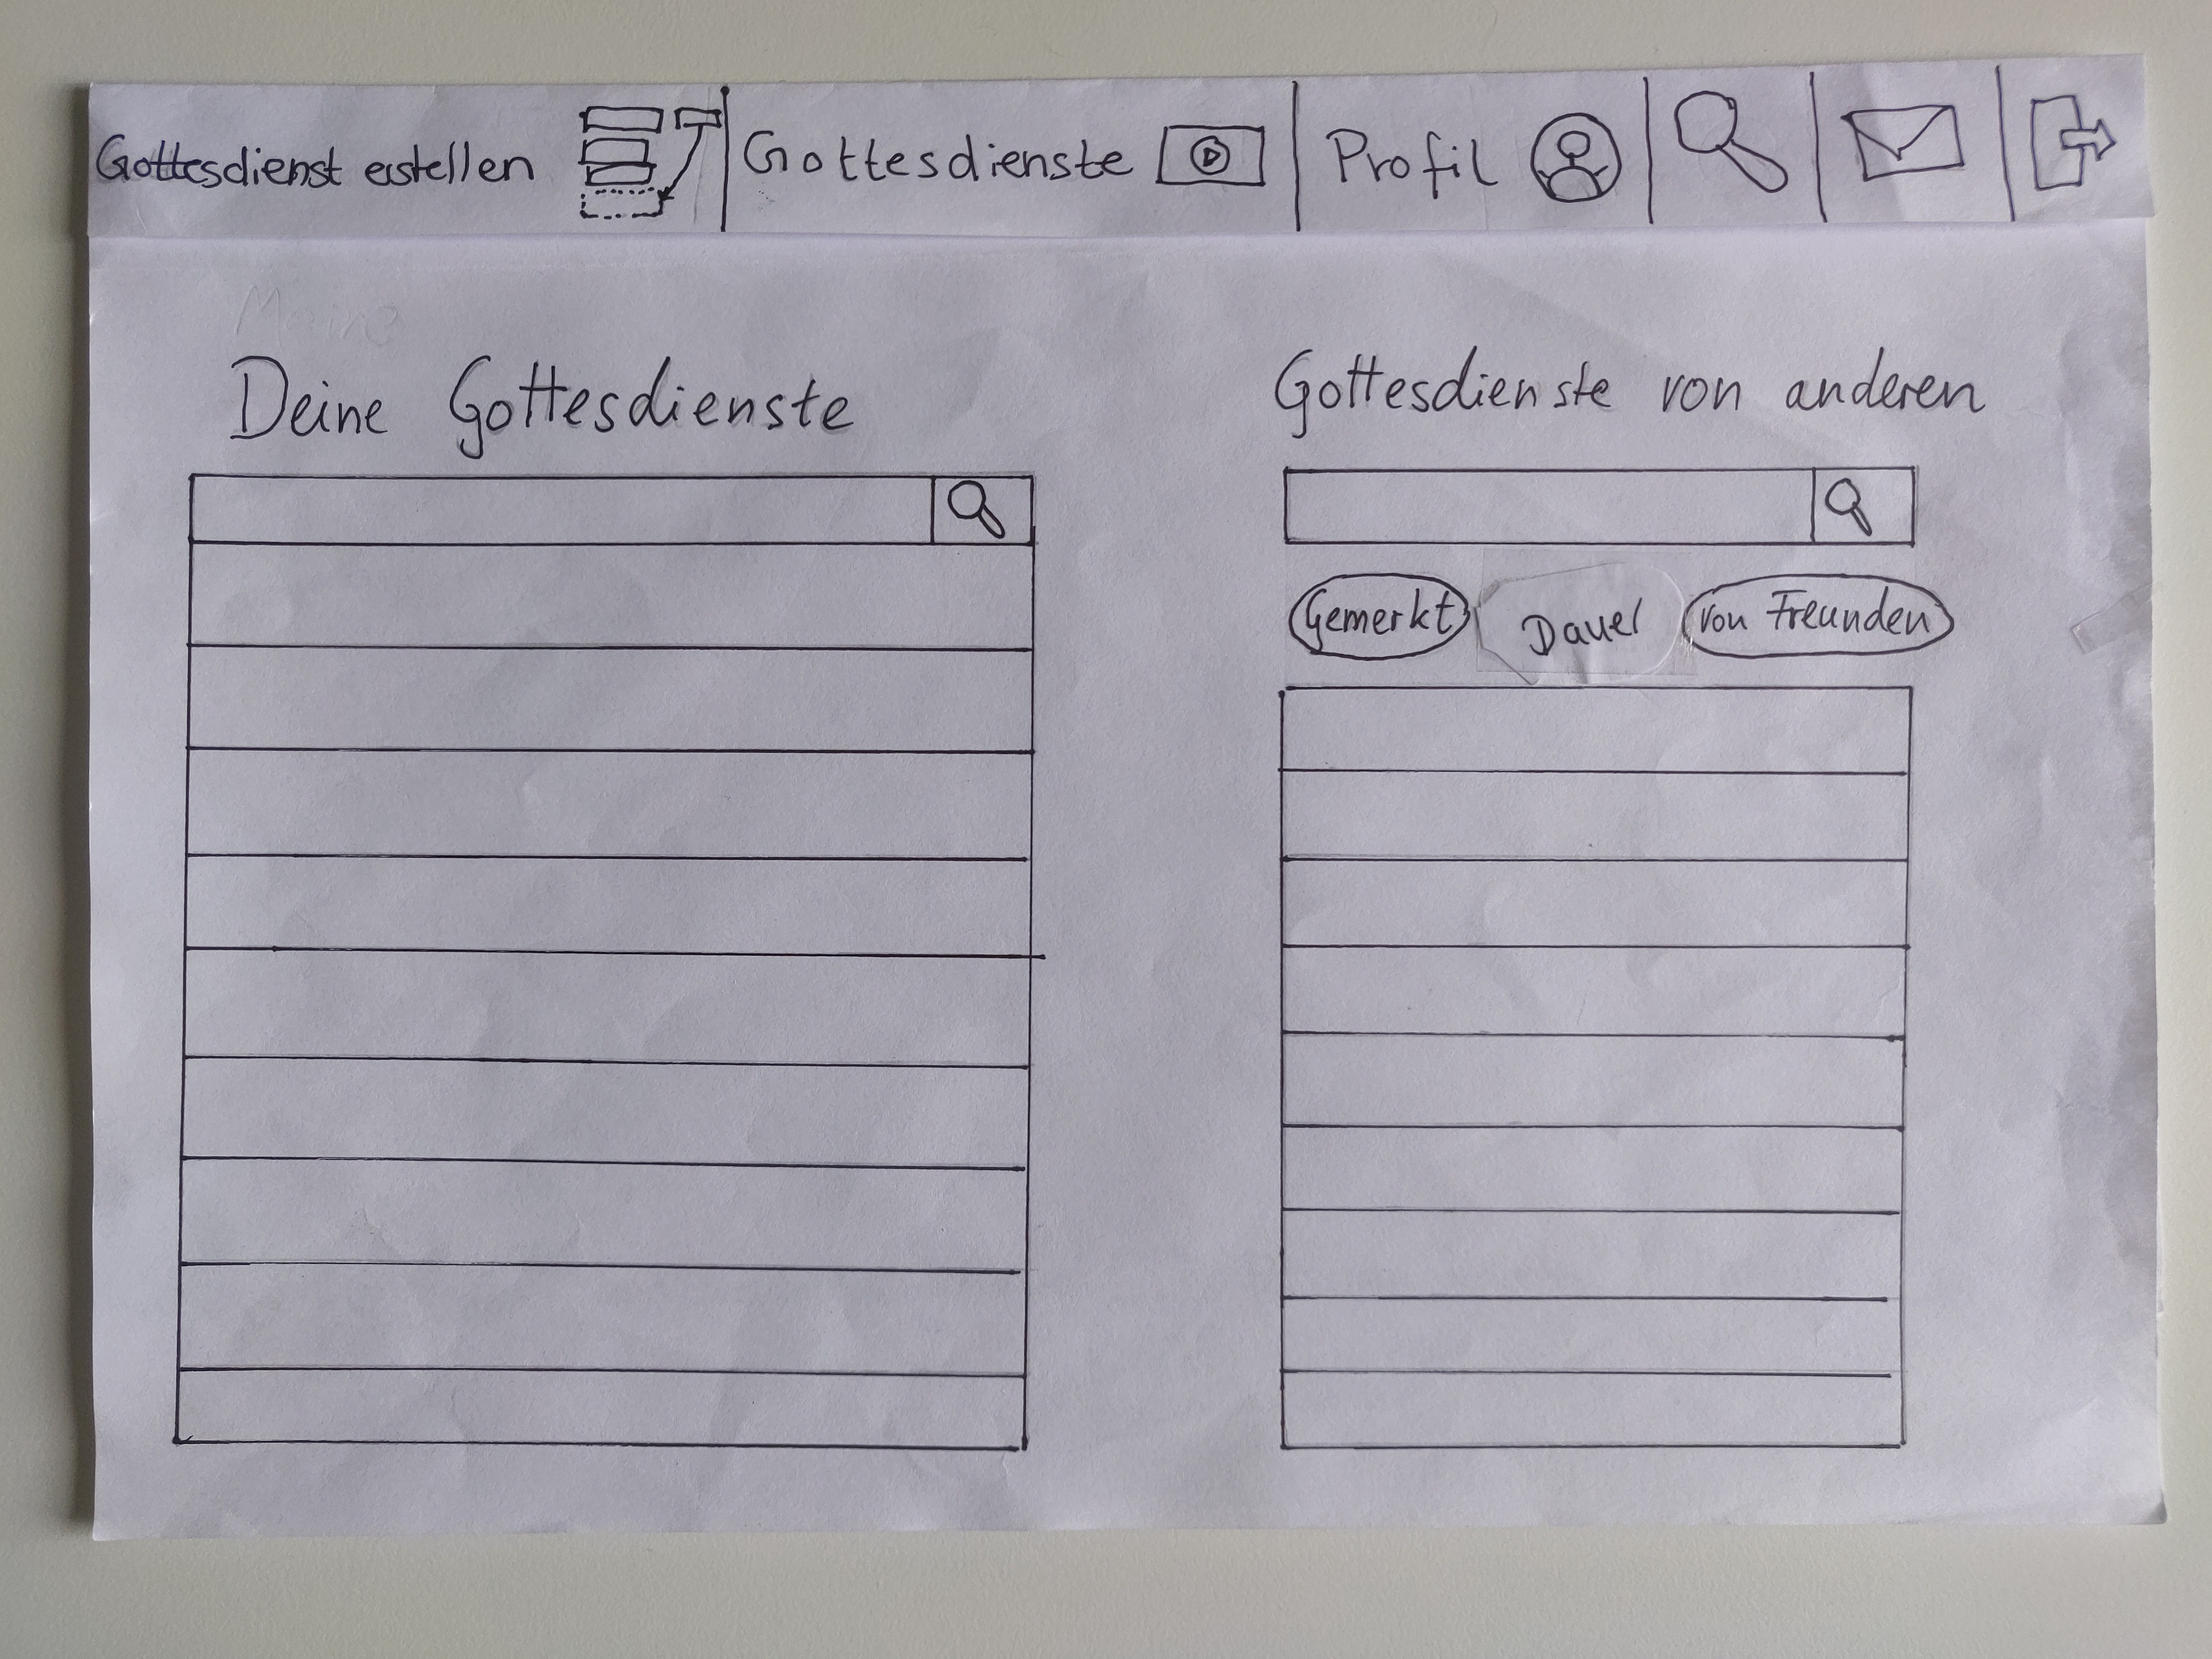 Gottesdienst erstellen Gottesdienste Profil
Deine Gottesdienste
Gottesdienste von anderen
Gemerkt Dauer von Freunden